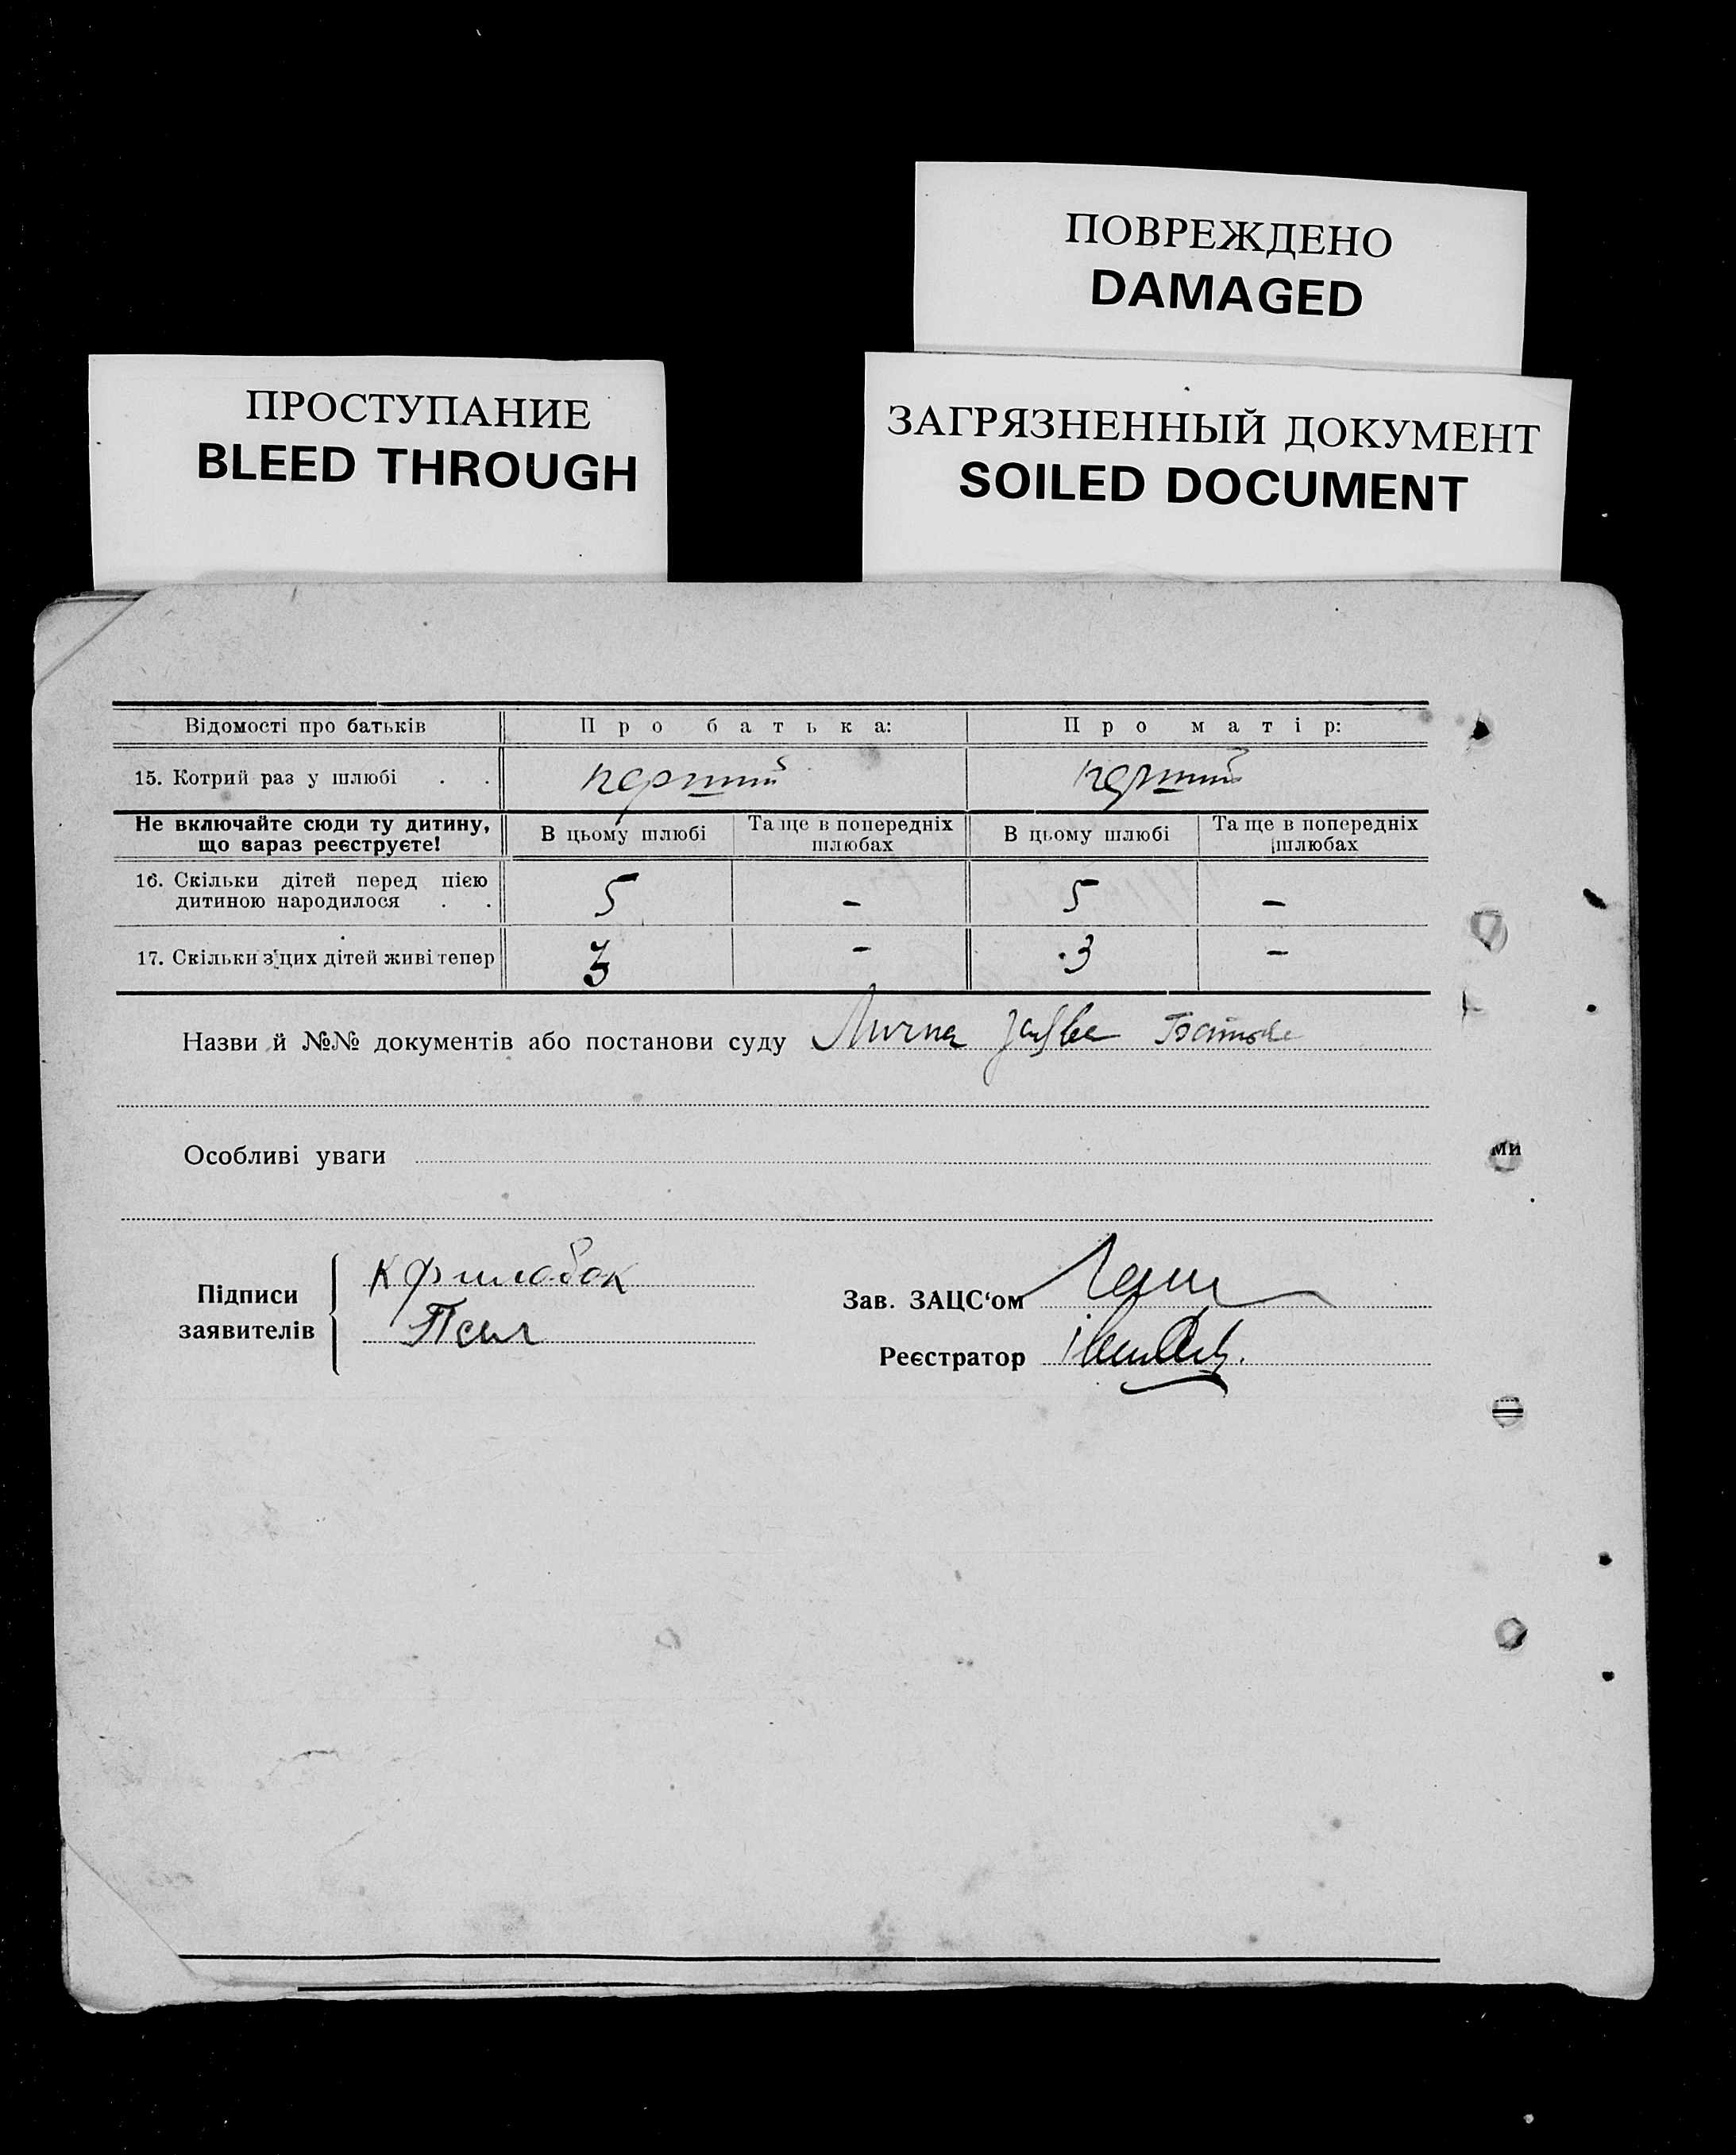 ПОВРЕЖДЕНО
DAMAGED
ПРОСТУПАНИЕ
BLEED THROUGH
ЗАГРЯЗНЕННЫЙ ДОКУМЕНТ
SOILED DOCUMENT
Відомості про батьків Про батька: Про матір:
15. Котрий раз у шлюбі . . перший перший
Не включайте сюди ту дитину, що зараз реєструєте! В цьому шлюбі Та ще в попередніх шлюбах В цьому шлюбі Та ще в попередніх шлюбах
16. Скільки дітей перед цією
дитиною народилося . . 5 – 5 –
17. Скільки з цих дітей живі тепер 3 – 3 –
Назви й №№ документів або постанови суду Лична Батька
Особливі уваги
ми
Підписи
заявителів
Зав. ЗАЦС‘ом
Реєстратор